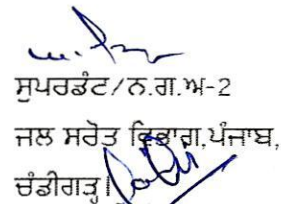 ਸੁਪਰਡੰਟ/ਨ.ਗ.ਅ-2
ਜਲ ਸਰੋਤ ਵਿਭਾਗ,ਪੰਜਾਬ,
ਚੰਡੀਗੜ੍ਹ।